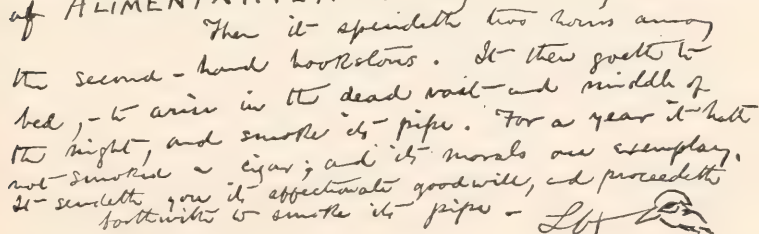 of ALIMENTA
Then it spendeth two hours among
the second-hand bookstores. It then goeth to
bed,—to arise in the dead vast and middle of
the night, and smoke its pipe. For a year it hath
not smoked a cigar; and its morals are exemplary.
It sendeth you its affectionate goodwill, and proceedeth
forthwith to smoke its pipe—